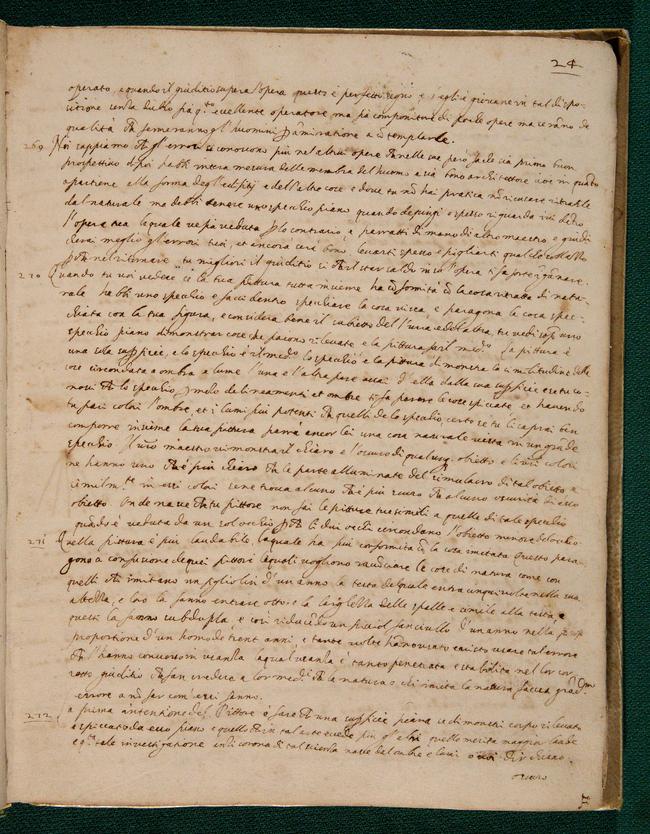 24
operato, e quando il giuditio supera l'opera questo è perfetto segno e se gli è giovane in tal dispo
sitione senza dubbio sia q.to eccellente operatore ma sia componitore di poche opere ma seranno de
qualità che fermeranno gl'huomini ad amiratione a contemplarle.
269 Noi sappiamo che gl'errori si conoscono più nel altrui opere che nelle sue però farle sia prima buon
prospettivo di poi habbi intera mesura delle membra del huomo e sia bono architettore cioè in quanto
apartiene alla forma degl'edifitij e dell'altre cose e dove tu non hai pratica non ricusare ritrarle
dal naturale ma debbi tenere uno spechio piano quando depingi e spesso riguarda ivi dentro
l'opera tua la quale ve sia veduta per lo contrario e parratti di mano di altro maestro e giudi
cherai meglio gl'errori tuoi, et ancora serà bono levarti spesso e pigliarti qualche sollazzo
perchè nel ritornare, tu migliori il giuditio che lo star saldo in su l'opera ti fa forte ingannare.
270 Quando tu voi vedere se la tua pittura tutta insieme ha conformità con la cosa ritratta di natu
rale habbi uno spechio e facci dentro spechiare la cosa viva, e paragona la cosa spe
chiata con la tua pittura, e considera bene il subietto del l'una e del altra, tu vedi
spechio piano dimonstrar cose che paiono rilevate e la pittura fa il med.o la pittura è
una sola superficie, e lo spechio è il med.o lo spechio e la pittura dimonstra la similitudine delle
cose circondata a ombra e lume l'una e l'altra pare assai di là dalla sua superficie e se tu co
nosci che lo spechio per mezo de lineamenti et ombre ti fa parere le cose spiccate et havendo
tu fra i colori l'ombre, et i lumi più potenti che quelli de lo spechio, certo se tu li saprai ben
comporre insieme la tua pittura parrà ancor lei una cosa naturale vista in un grande
spechio il vostro maestro vi monstra il chiaro e l'oscuro di qualunque obietto e li vostri colori
ne hanno uno che è più chiaro che le parte alluminate del simulacro di tal obietto e
similm.te in essi colori se ne trova alcuno che è più scuro che alcuna oscurità di esso
obietto. Onde nasce che tu pittore non fai le pitture tue simili a quelle di tale spechio
quando è veduta da un sol ochio perchè li dui ochi circondano l'obietto minore del ochio
271 Quella pittura è più laudabile, la quale ha più conformità con la cosa imitata questo para
gono a confusione de quei pittori li quali vogliono racconciare le cose di natura come son
quelli che imitano un figliolin d'un anno la testa del quale entra cinque volte nella sua
altezza, e loro la fanno entrare otto e la larghezza delle spalle è simile alla testa, e
questi la fanno subdupla, e così riducendo un picciol fanciullo d'un anno nella
proportione d'un homo de trent'anni, e tante volte hanno usato e visto usare tal errore
che l'hanno converso in usanza la qual usanza è tanto penetrata e stabilita nel lor cor
rotto giuditio che fan credere a lor med.mi che la natura o chi imita la natura faccia grand.mo
errore a non far com'essi fanno.
272 La prima intentione del Pittore è fare che una superficie piana si dimostri corpo rilevato
e spiccato da esso piano e quello che in tal arte eccede più gl'altri quello merita maggior laude
e questa tale investigatione over corona di tal scientia nasce dal ombre e lumi o voi dir chiaro
oscuro